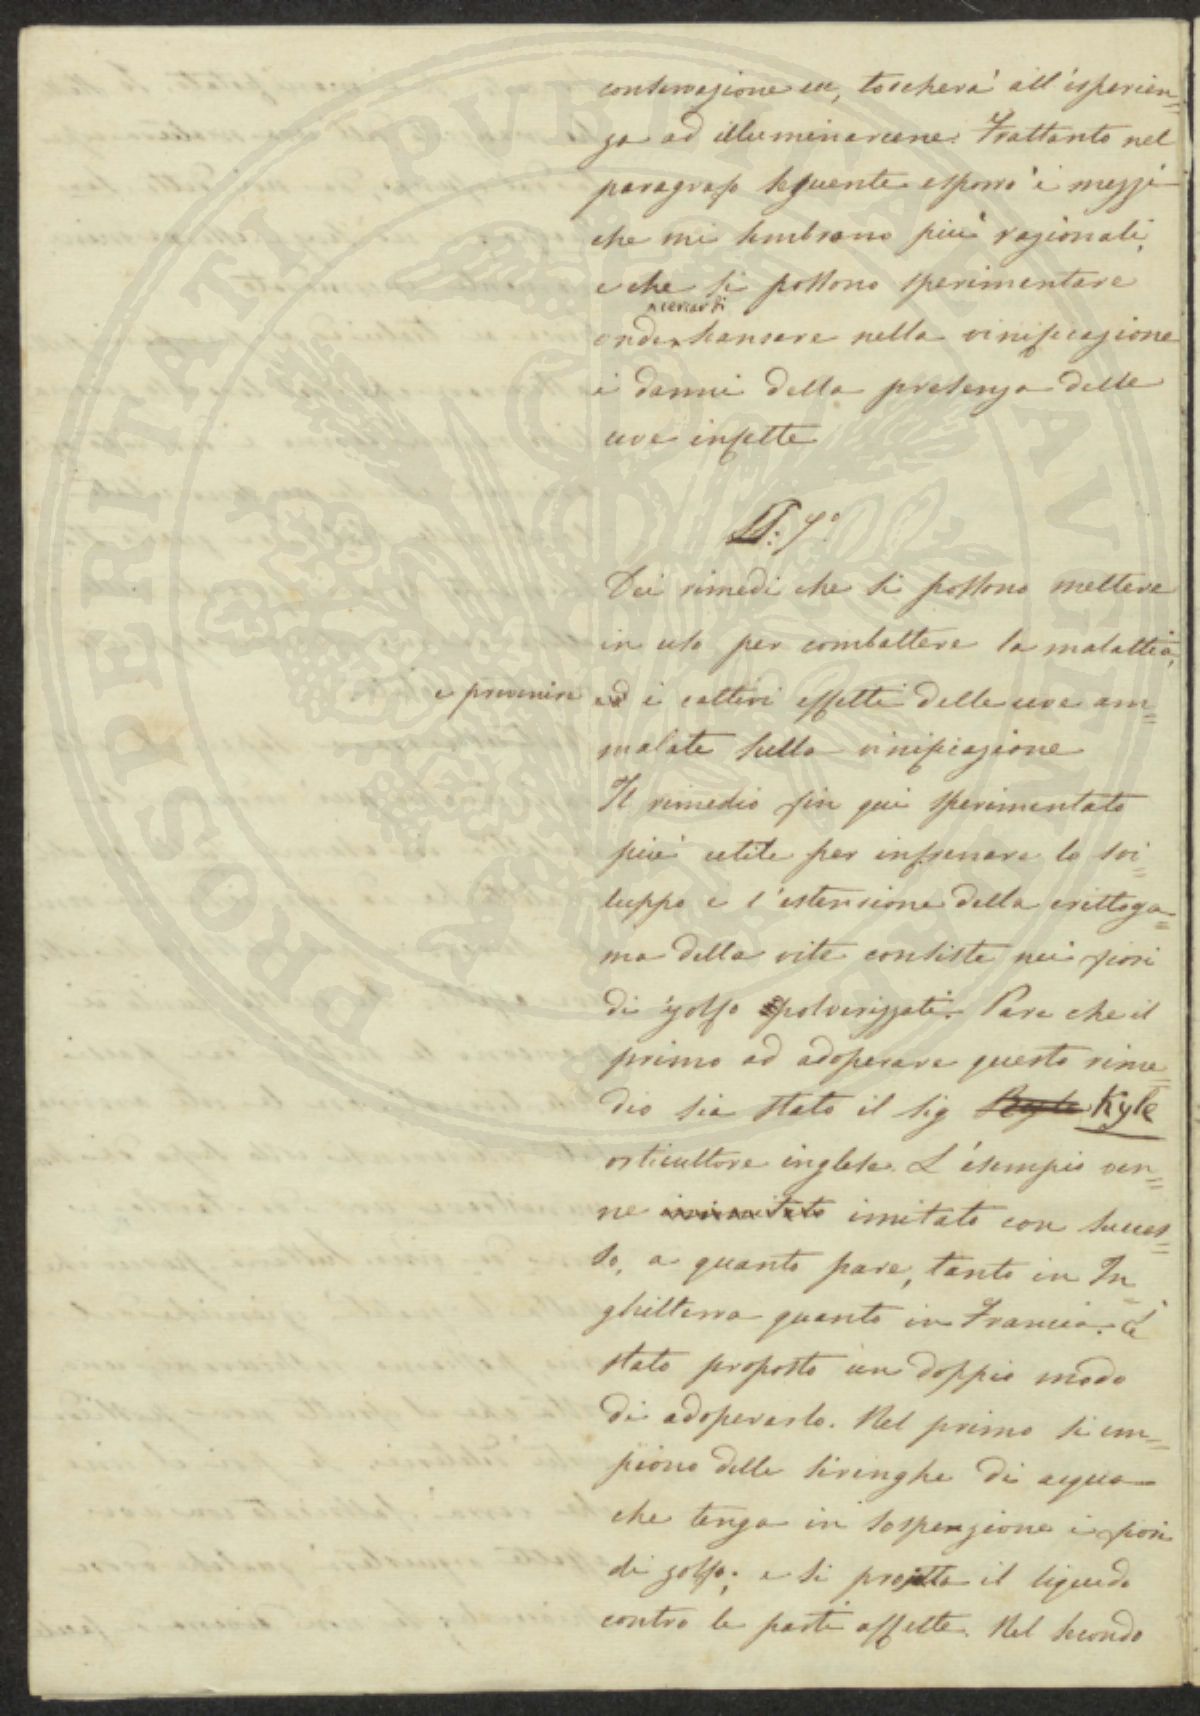 conservazione ecc, toccherà all'esperien=
za ad illuminarcene. Frattanto nel
paragrafo seguente esporrò i mezzi
che mi sembrano più ragionali,
e che si possono sperimentare
onde scansare nella vinificazione
i danni della presenza delle
uve infette
§. 7.°
Dei rimedi che si possono mettere
in uso per combattere la malattia,
e prevenire ed i cattivi effetti delle uve am=
malate sulla vinificazione
Il rimedio fin qui sperimentato
più utile per infrenare lo svi=
luppo e l'estensione della crittoga=
ma della vite consiste nei fiori
di zolfo polverizzati. Pare che il
primo ad adoperare questo rime=
dio sia stato il sig Kyle
orticultore inglese. L'esempio ven=
ne imitato con succes=
so, a quanto pare, tanto in In=
ghilterra quanto in Francia. È
stato proposto un doppio modo
di adoperarlo. Nel primo si em=
piono delle siringhe di acqua
che tenga in sospenzione i fiori
di zolfo; e si projetta il liquido
contro le parti affette. Nel secondo
PROSPERITATI PUBLICAE AUGENDAE